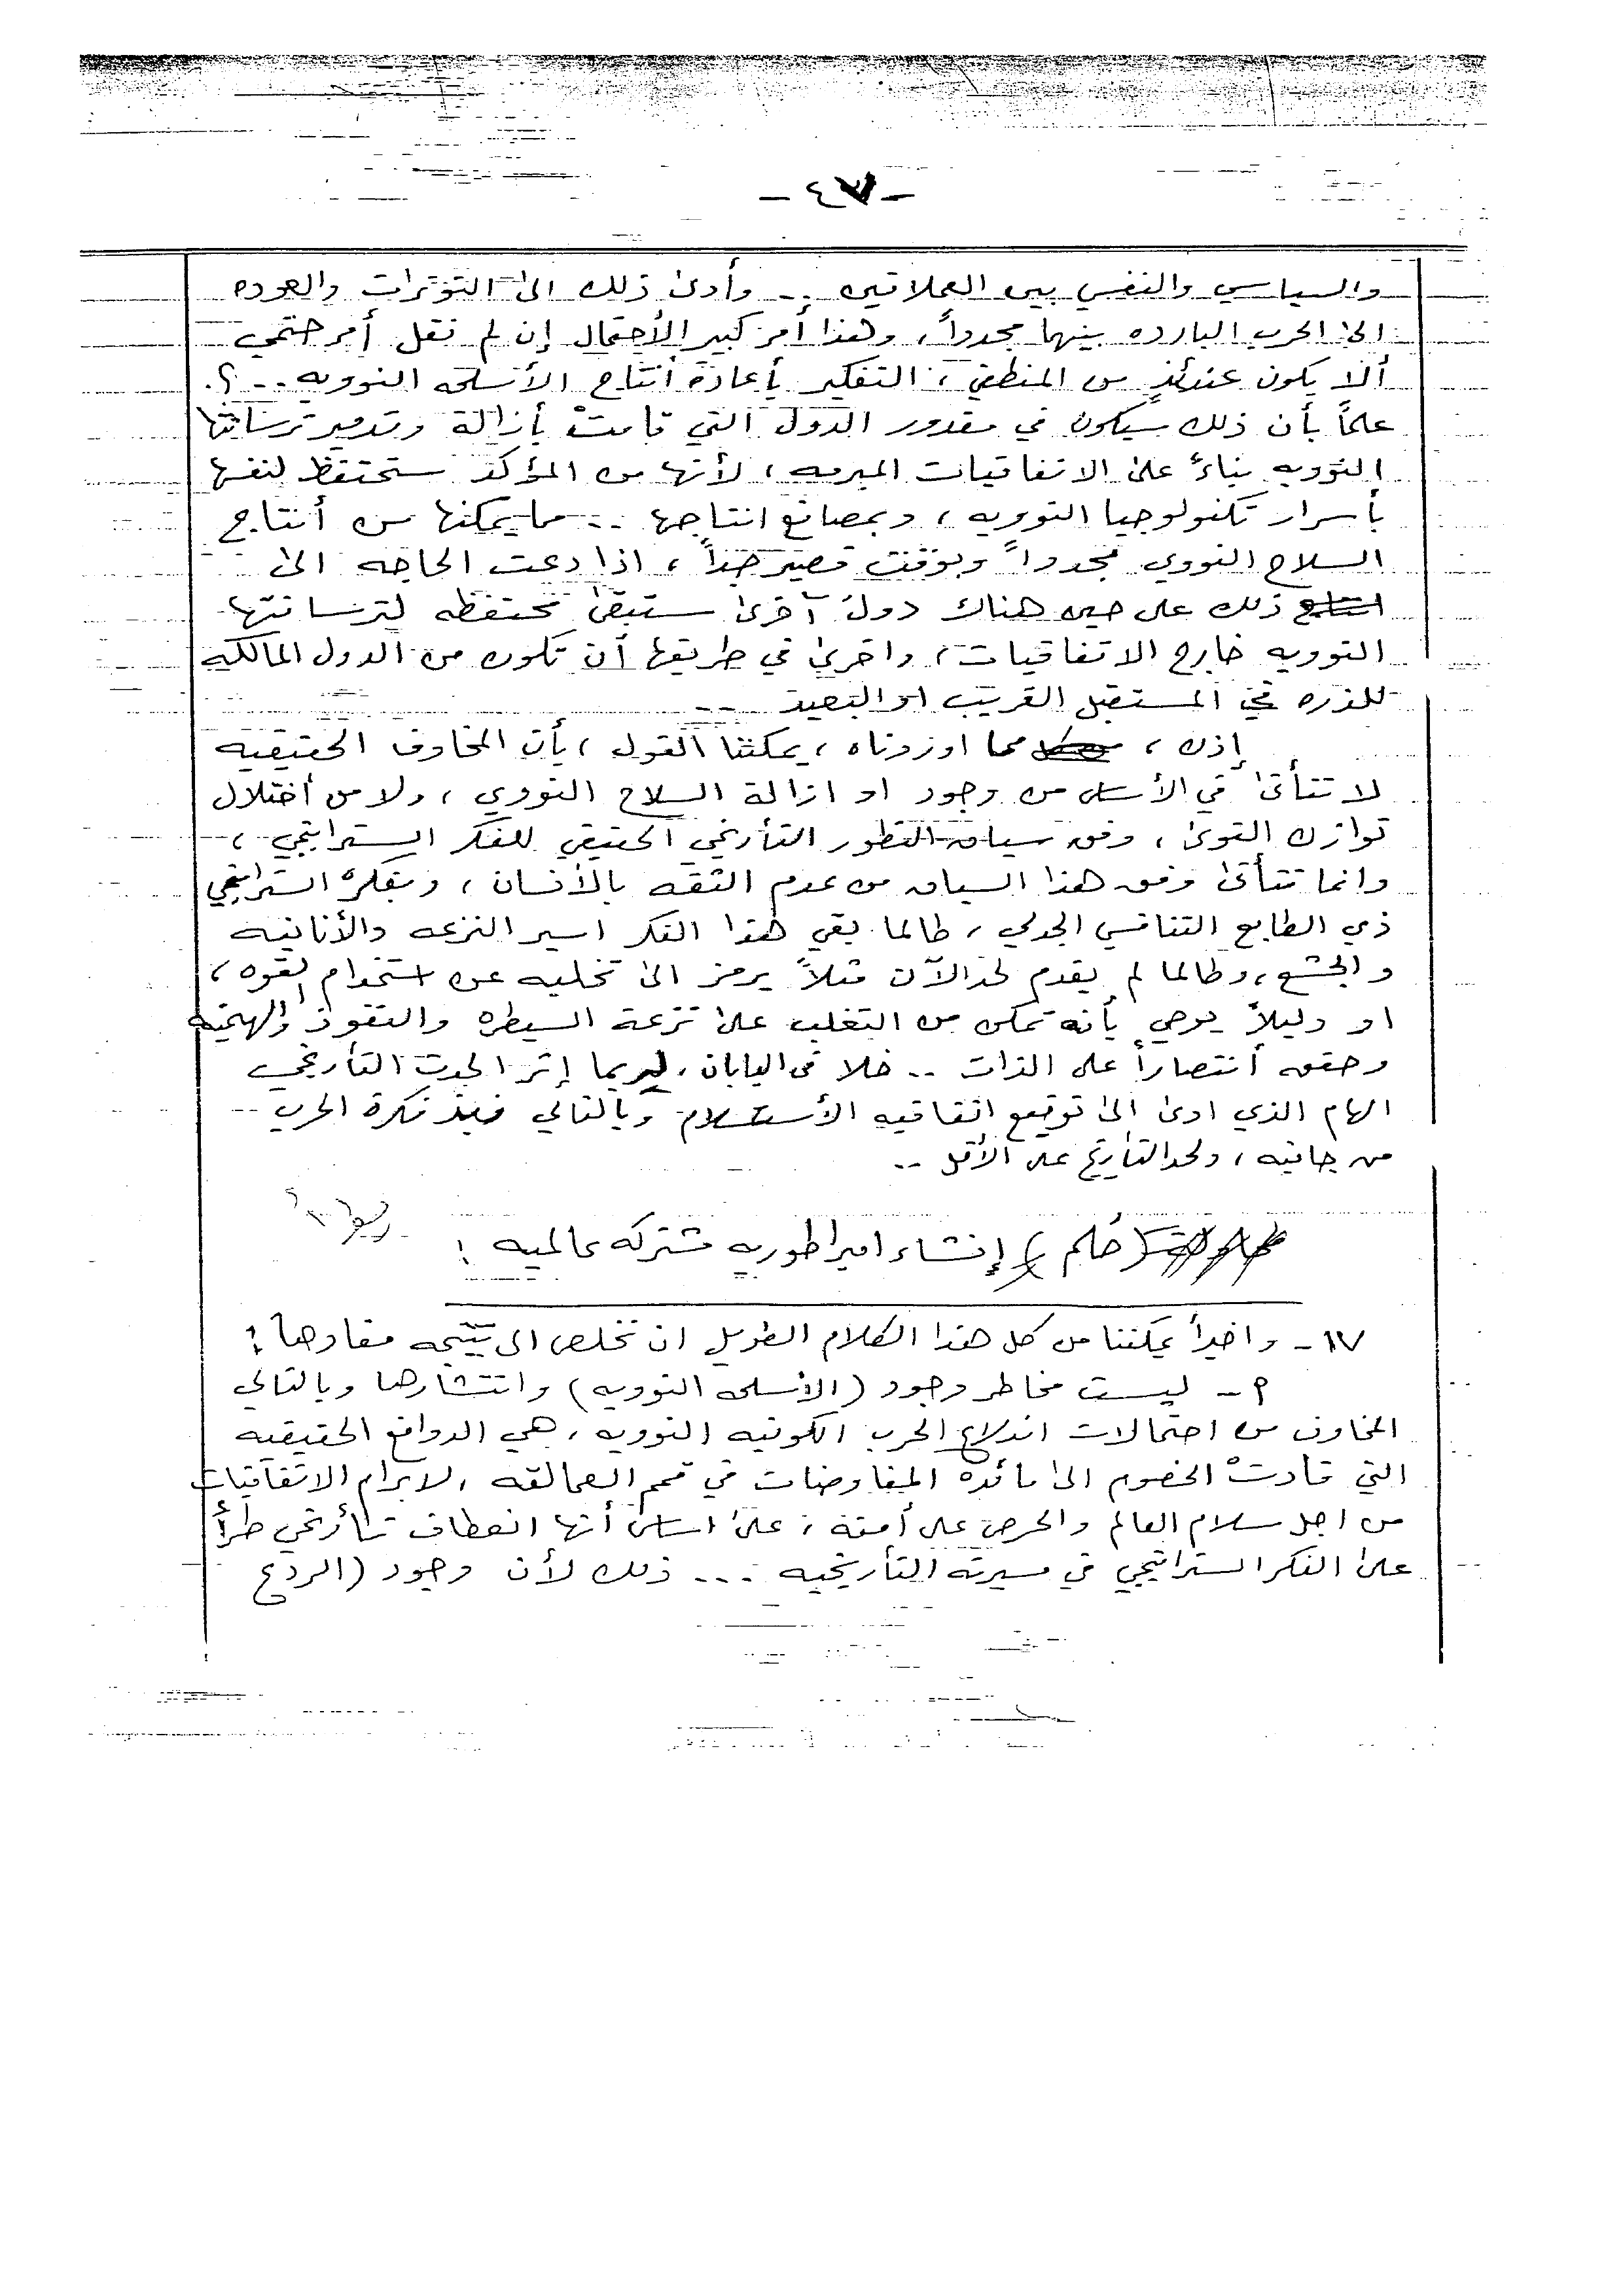 - ٤٣ -
والسياسي والنفسي بين العملاقين .. وأدى ذلك الى التوترات والعوده
الى الحرب البارده بينهما مجدداً، وهذا أمر كبير الأحتمال إن لم نقل أمر حتمي
ألا يكون عندئذٍ من المنطقي، التفكير بأعادة أنتاج الأسلحه النوويه ..؟.
علماً بأن ذلك سيكون في مقدور الدول التي قامتْ بأزالة وتدمير ترسانتها
النوويه بناءً على الاتفاقيات المبرمه، لأنها من المؤكد ستحتفظ لنفسها
بأسرار تكنولوجيا النوويه، وبمصانع انتاجها .. مما يمكنها من أنتاج
السلاح النووي مجدداً وبوقت قصير جداً، اذا دعت الحاجه الى
ذلك على حين هناك دولٌ آخرى ستبقى محتفظه لترسانتها
النوويه خارج الاتفاقيات، واخرى في طريقها أن تكون من الدول المالكه
للذره في المستقبل القريب او البعيد ..
إذن، مما اوردناه، يمكننا القول، بأن المخاوف الحقيقيه
لا تتأتى في الأساس من وجود او ازالة السلاح النووي، ولا من أختلال
توازن القوى، وفق سياق التطور التأريخي الحقيقي للفكر الستراتيجي،
وانما تتأتى وفق هذا السياق من عدم الثقه بالأنسان، وبفكره الستراتيجي
ذي الطابع التنافسي الجدلي، طالما بقي هذا الفكر اسير النزعه والأنانيه
والجشع، وطالما لم يقدم لحد الآن مثلاً يرمز الى تخليه عن استخدام القوه،
او دليلاً يوحي بأنه تمكن من التغلب على نزعة السيطره والنفوذ والهيمنه
وحقق أنتصاراً على الذات .. خلا في اليابان، لربما إثر الحدث التأريخي
الهام الذي ادى الى توقيع اتفاقيه الأستسلام وبالتالي نبذ فكرة الحرب ..
من جانبه، ولحد التأريخ على الأقل ..
(حُلم) إنشاء امبراطوريه مشتركه عالميه :
١٧ - واخيراً يمكننا من كل هذا الكلام الطويل ان نخلص الى نتيجه مفادها :
أ - ليست مخاطر وجود (الأسلحه النوويه) وانتشارها وبالتالي
المخاوف من احتمالات اندلاع الحرب الكونيه النوويه، هي الدوافع الحقيقيه
التي قادتْ الخصوم الى مائدة المفاوضات في قمم العمالقه، لابرام الاتفاقيات
من اجل سلام العالم والحرص على أمنة، على اساس أنها انعطاف تأريخي طرأ
على الفكر الستراتيجي في مسيرته التأريخيه ... ذلك لأن وجود (الردع